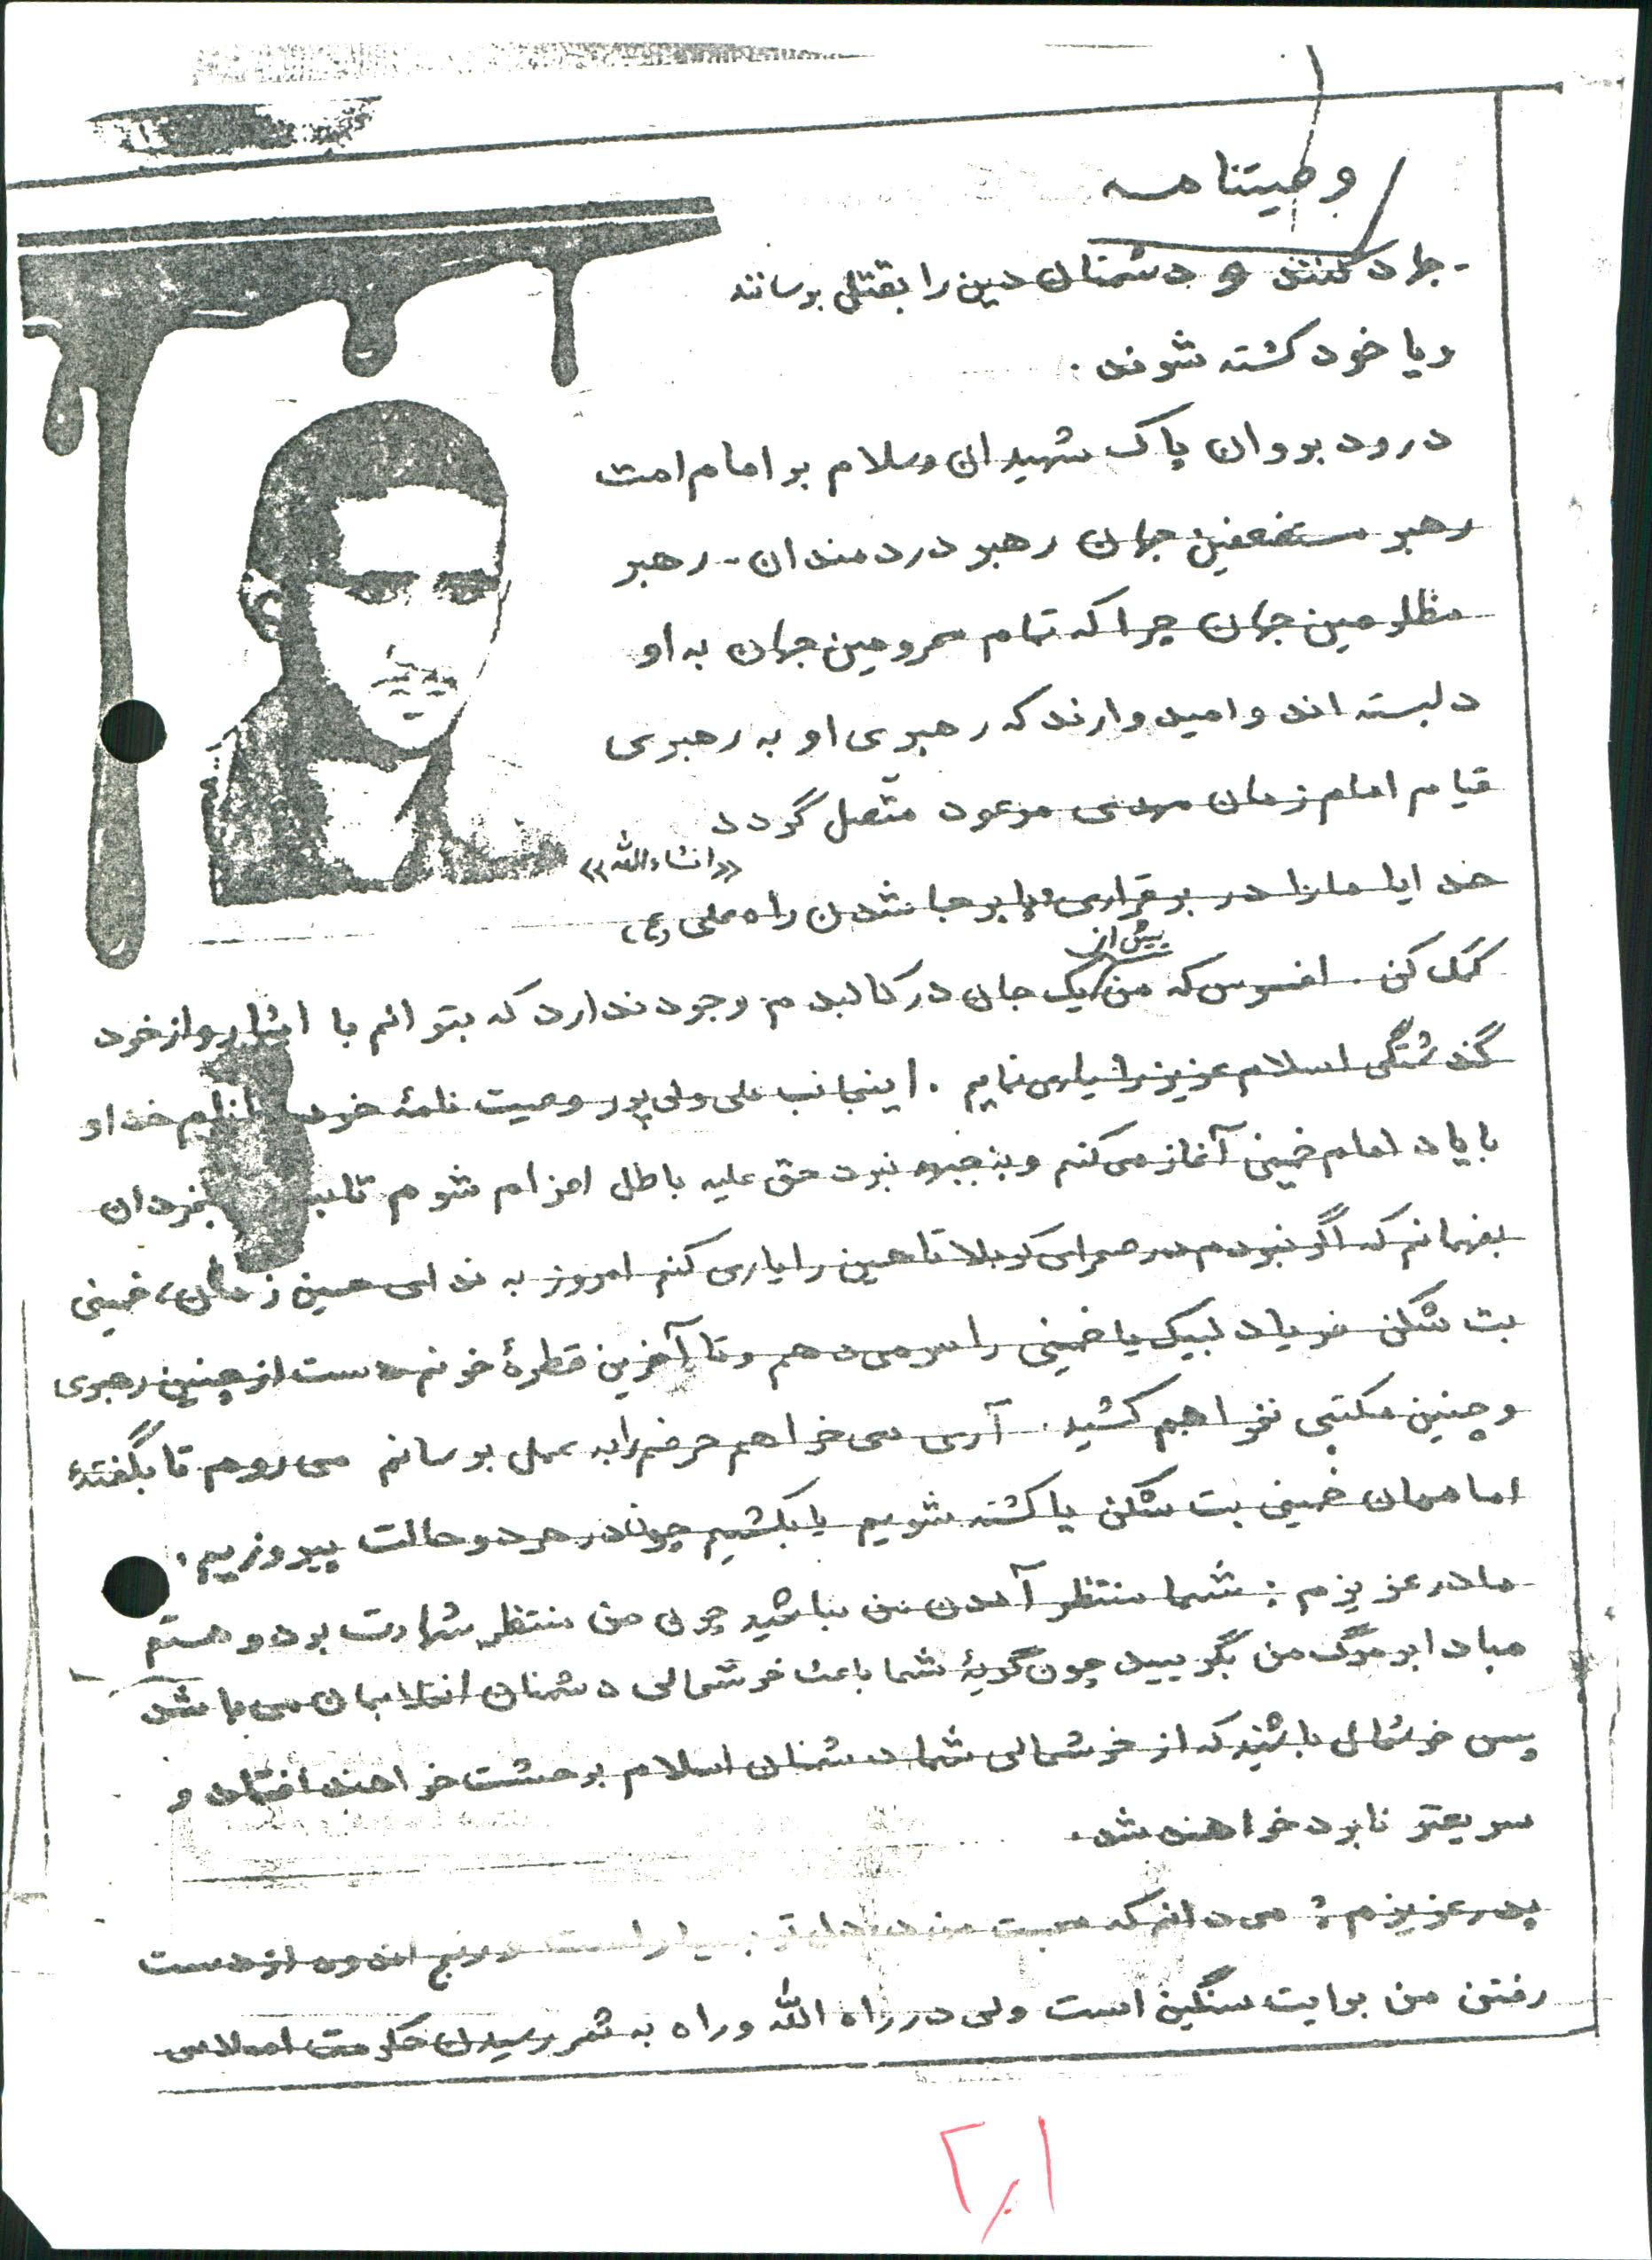 وصیتنامه
- جهاد کنند و دشمنان دین را بقتل برسانند
و یا خود کشته شوند.
درود بر روان پاک شهیدان و سلام بر امام امت
رهبر مستضعفین جهان رهبر دردمندان - رهبر
مظلومین جهان چرا که تمام محرومین جهان به او
دلبسته اند و امیدوارند که رهبری او به رهبری
قیام امام زمان مهدی موعود متّصل گردد
«انشاءالله»
خدایا ما را در برقراری و پا برجا شدن راه علی (ع)
کمک کن. افسوس که من بیش از یک جان در کالبدم وجود ندارد که بتوانم با ایثار و از خود
گذشتگی اسلام عزیز را یاری نمایم. اینجانب علی ولی پور وصیت نامهٔ خود را بنام خدا و
با یاد امام خمینی آغاز می کنم و به جبهه نبرد حق علیه باطل اعزام شوم تا
بفهمانم که اگر نبودم در صحرای کربلا تا حسین را یاری کنم امروز به ندای حسین زمان، خمینی
بت شکن فریاد لبیک یا خمینی را سر می دهم و تا آخرین قطرهٔ خونم دست از چنین رهبری
و چنین مکتبی نخواهم کشید. آری می خواهم حرفم را به عمل برسانم می روم تا بگفتهٔ
اماممان خمینی بت شکن یا کشته شویم یا بکشیم چون در هر دو حالت پیروزیم.
مادر عزیزم: شما منتظر آمدن من نباشید چون من منتظر شهادت بود و هستم
مبادا بر مرگ من بگریید چون گریهٔ شما باعث خوشحالی دشمنان انقلابمان می باشد
پس خوشحال باشید که از خوشحالی شما دشمنان اسلام بوحشت خواهند افتاد و
سریعتر نابود خواهند شد.
پدر عزیزم: می دانم که محبت من در دل تو بسیار است و رنج اندوه از دست
رفتن من برایت سنگین است ولی در راه الله و راه به ثمر رسیدن حکومت اسلامی
۲٫۱